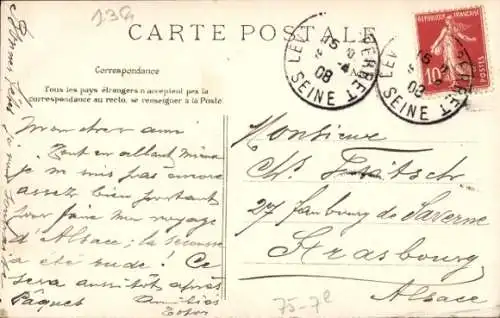 13e
CARTE POSTALE
Correspondance
Tous les pays étrangers n'acceptent pas la
correspondance au recto, se renseigner à la Poste
REPUBLIQUE FRANÇAISE
10
POSTES
LEVALLOIS PERRET
08
SEINE
LEV PERRET
15
08
SEINE
Mon cher ami
Tout en allant mieux
je ne suis pas encore
assez bien portant
pour faire mon voyage
d'Alsace; la secousse
a été rude! Ce
sera aussitôt après
Pâques Amitiés
Monsieur
Ch. Fritsch
27 Faubourg de Saverne
Strasbourg
Alsace
75-78